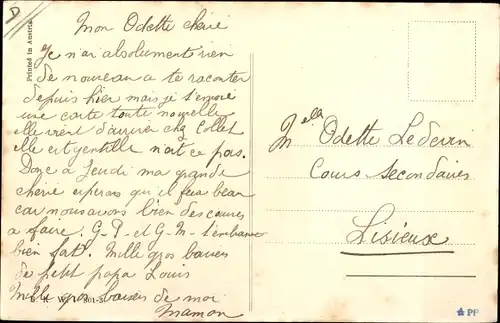 D
Printed in Austria
Mon Odette chérie
Je n'ai absolument rien
de nouveau a te raconter
depuis hier mais je t'envoie
une carte toute nouvelle
elle vient d'arriver chez Collet
elle est gentille n'est ce pas.
Donc à Jeudi ma grande
chérie espérons qu'il fera beau
car nous avons bien des courses
a faire. G-P- et G-M- t'embrasse
bien fort. Mille gros baisers
de petit papa Louis
Mille gros baisers de moi
maman
Melle Odette Lederin
Cours Secondaires
Lisieux
PF